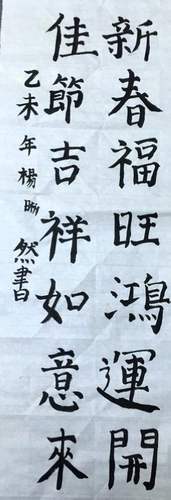 新春福旺鴻運開
佳節吉祥如意來
乙未年楊然書